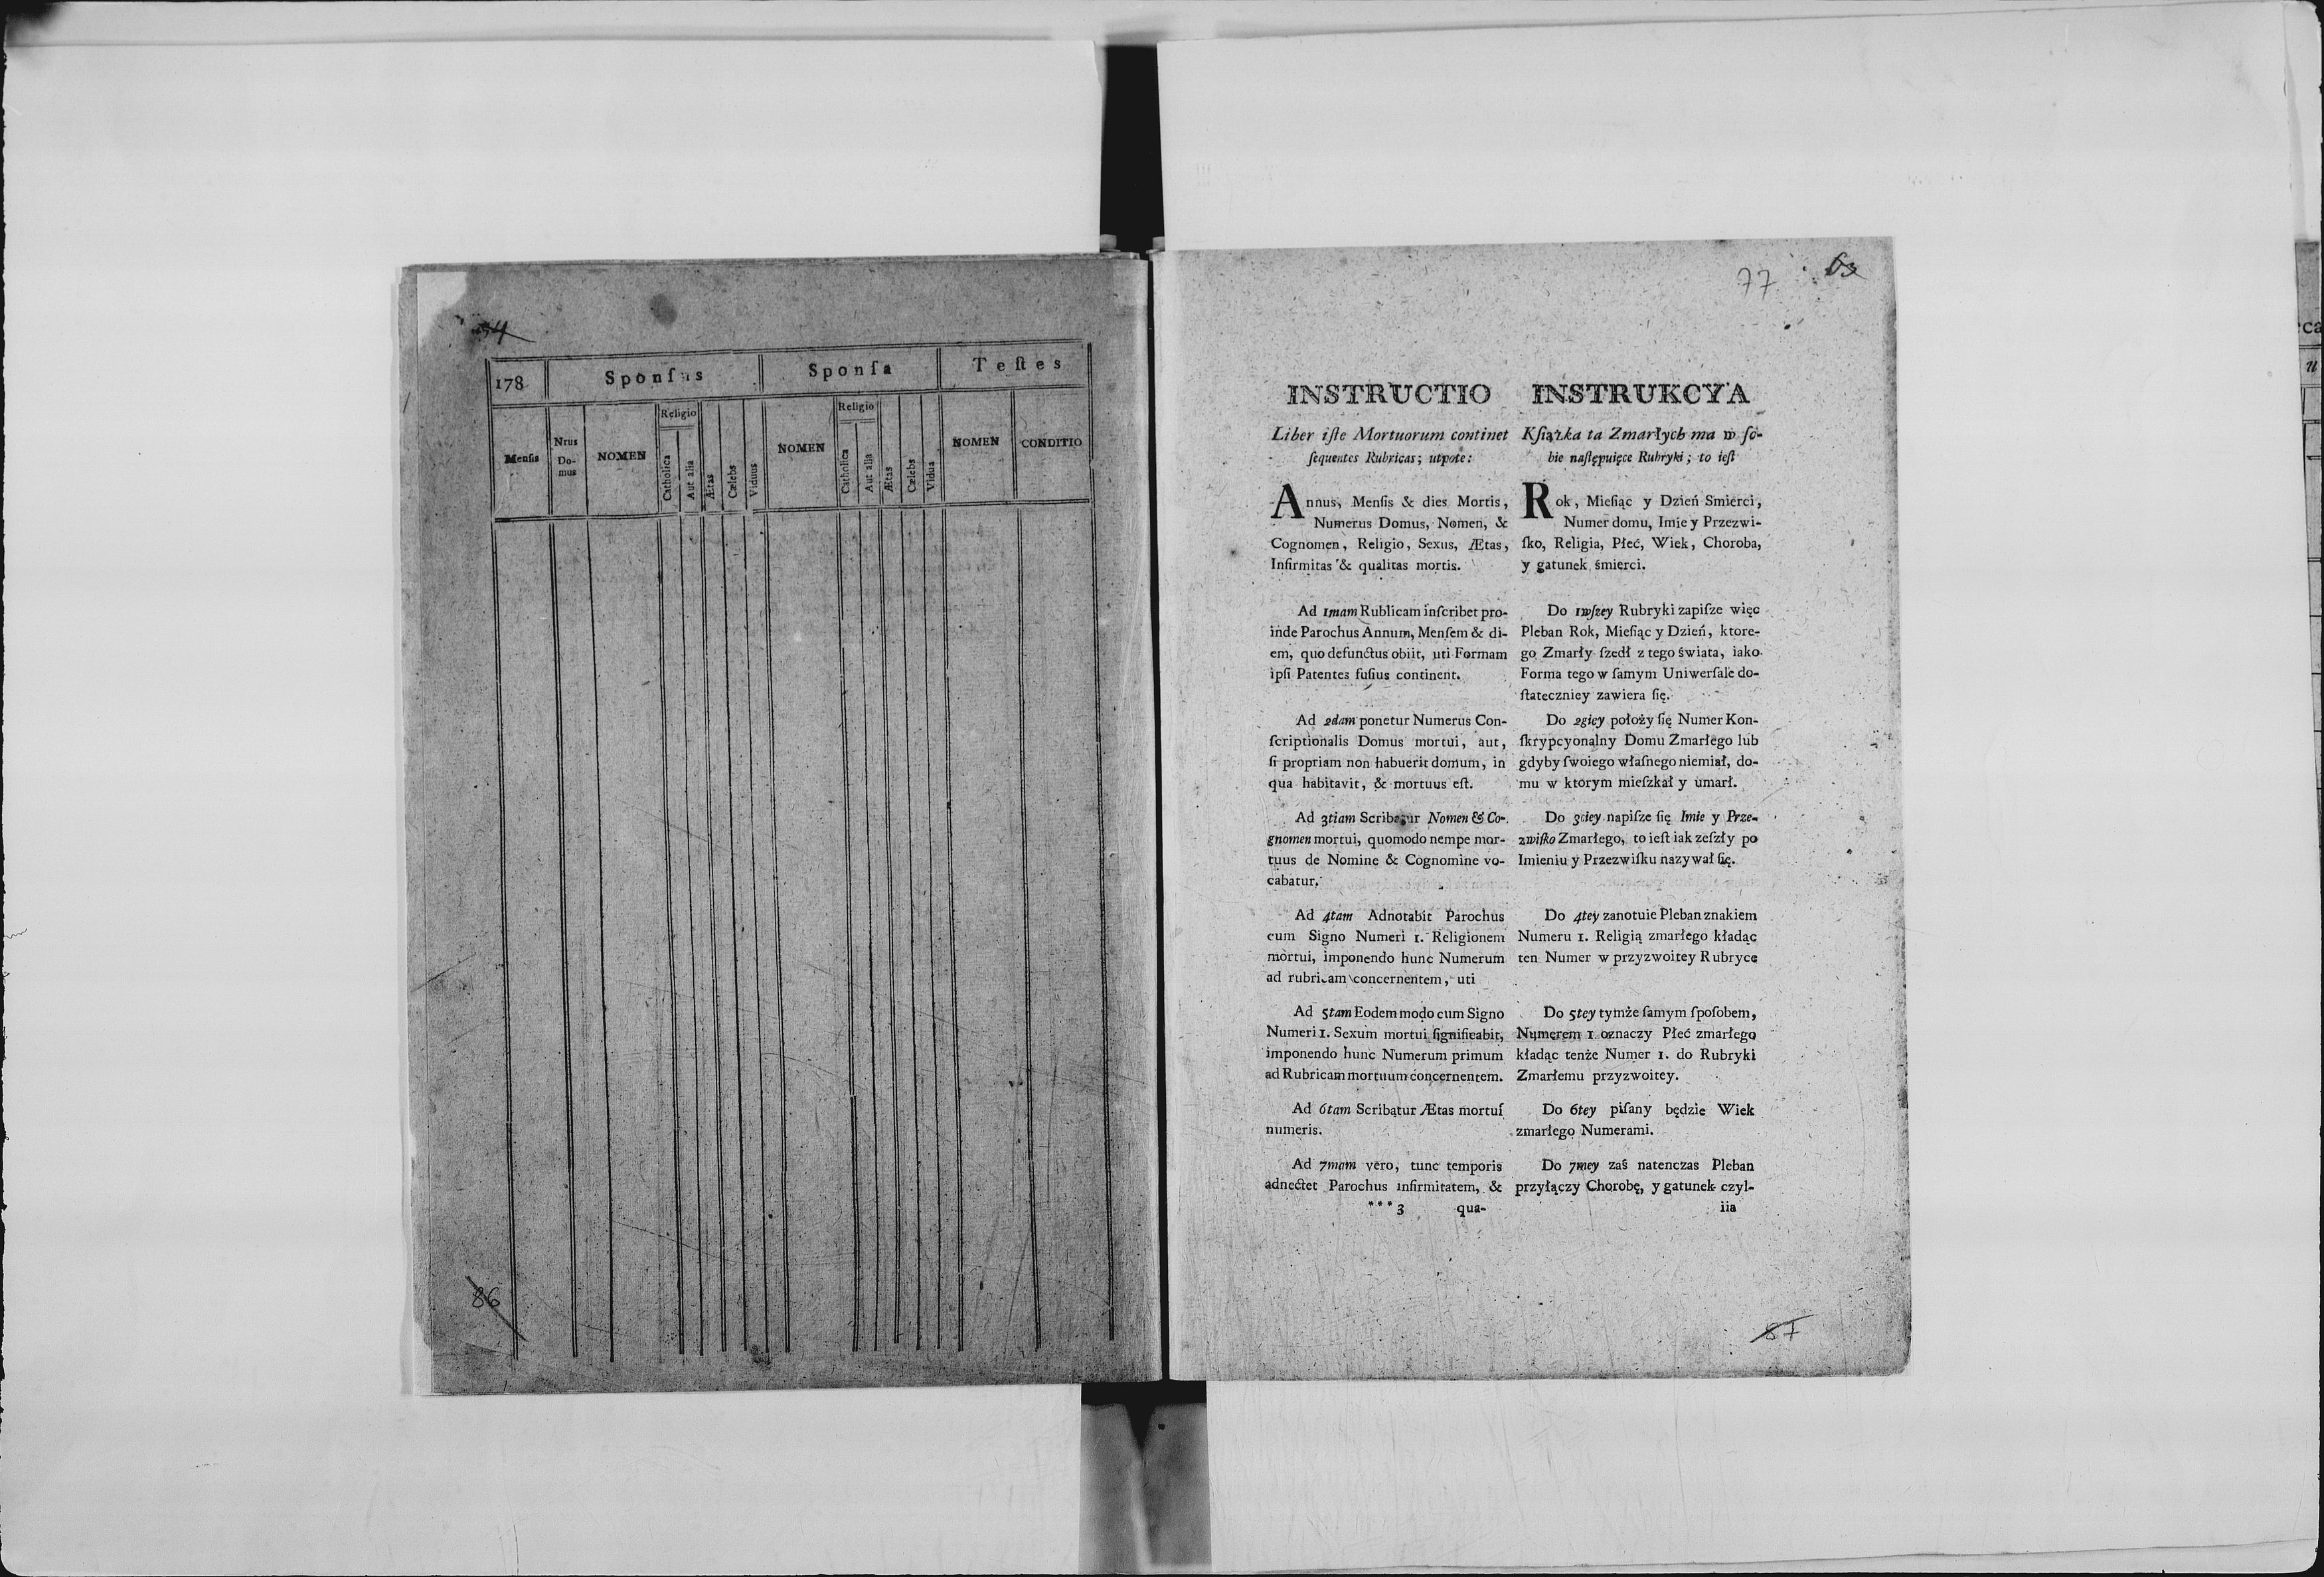 54
178
Sponſus
Sponſa
Teſtes
Menſis
Nrus
Do-
mus
NOMEN
Religio
Catholica
Aut alia
Ætas
Cælebs
Viduus
NOMEN
Religio
Catholica
Aut alia
Ætas
Cælebs
Vidua
NOMEN
CONDITIO
86
77
63
INSTRUCTIO
Liber iſte Mortuorum continet
ſequentes Rubricas; utpote:
Annus, Menſis & dies Mortis,
Numerus Domus, Nomen, &
Cognomen, Religio, Sexus, Ætas,
Infirmitas & qualitas mortis.
Ad 1mam Rublicam inſcribet pro-
inde Parochus Annum, Menſem & di-
em, quo defunctus obiit, uti Formam
ipſi Patentes fuſius continent.
Ad 2dam ponetur Numerus Con-
ſcriptionalis Domus mortui, aut,
ſi propriam non habuerit domum, in
qua habitavit, & mortuus eſt.
Ad 3tiam Scribatur Nomen & Co-
gnomen mortui, quomodo nempe mor-
tuus de Nomine & Cognomine vo-
cabatur.
Ad 4tam Adnotabit Parochus
cum Signo Numeri 1. Religionem
mortui, imponendo hunc Numerum
ad rubricam concernentem, uti
Ad 5tam Eodem modo cum Signo
Numeri 1. Sexum mortui ſignificabit,
imponendo hunc Numerum primum
ad Rubricam mortuum concernentem.
Ad 6tam Scribatur Ætas mortui
numeris.
Ad 7mam vero, tunc temporis
adnectet Parochus infirmitatem, &
***3 qua-
INSTRUKCYA
Kſiążka ta Zmarłych ma w ſo-
bie naſtępuięce Rubryki; to ieſt
Rok, Mieſiąc y Dzień Smierci,
Numer domu, Imie y Przezwi-
ſko, Religia, Płeć, Wiek, Choroba,
y gatunek śmierci.
Do 1wſzey Rubryki zapiſze więc
Pleban Rok, Mieſiąc y Dzień, ktore-
go Zmarły ſzedł z tego świata, iako
Forma tego w ſamym Uniwerſale do-
ſtateczniey zawiera ſię.
Do 2giey położy ſię Numer Kon-
ſkrypcyonalny Domu Zmarłego lub
gdyby ſwoiego właſnego niemiał, do-
mu w ktorym mieſzkał y umarł.
Do 3ciey napiſze ſię Imie y Prze-
zwiſko Zmarłego, to ieſt iak zeſzły po
Imieniu y Przezwiſku nazywał ſię.
Do 4tey zanotuie Pleban znakiem
Numeru 1. Religią zmarłego kładąc
ten Numer w przyzwoitey Rubryce
Do 5tey tymże ſamym ſpoſobem,
Numerem 1. oznaczy Płeć zmarłego
kładąc tenże Numer 1. do Rubryki
Zmarłemu przyzwoitey.
Do 6tey piſany będzie Wiek
zmarłego Numerami.
Do 7mey zaś natenczas Pleban
przyłączy Chorobę, y gatunek czyl-
iia
87